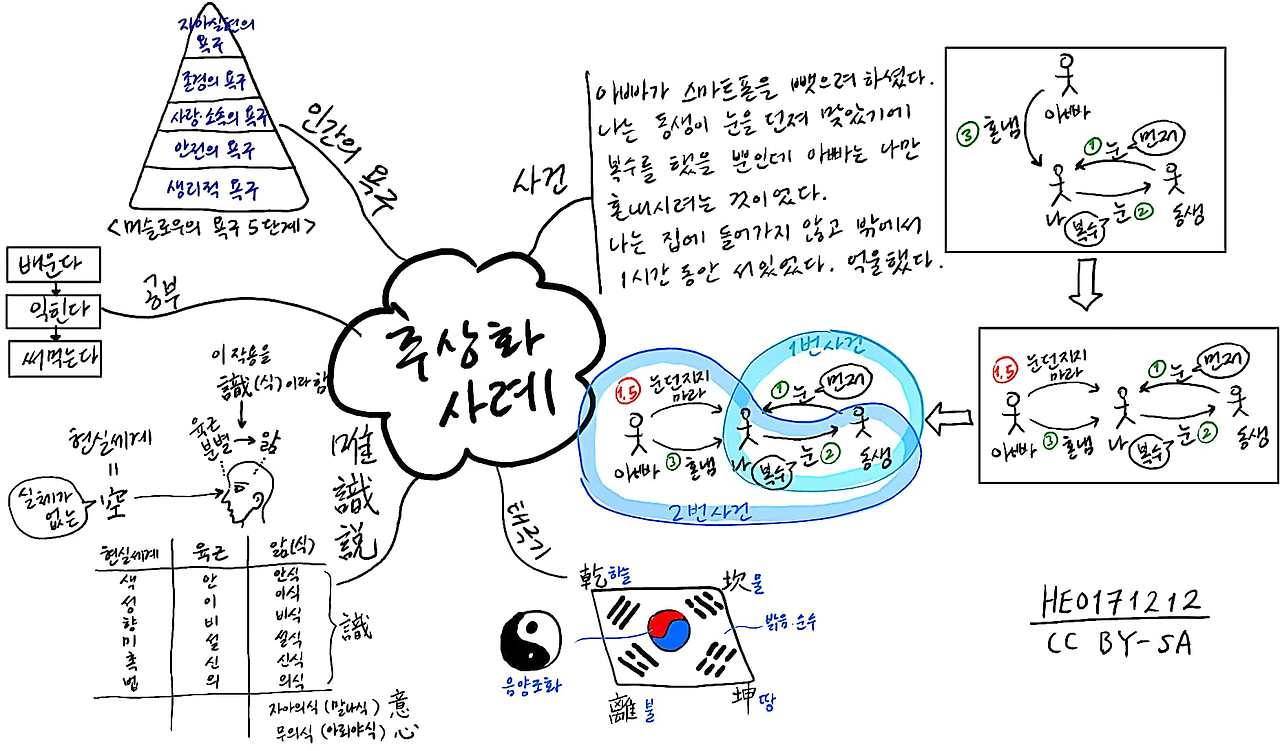 추상화
사례
인간의 욕구
자아실현의
욕구
존경의 욕구
사랑·소속의 욕구
안전의 욕구
생리적 욕구
<머슬로우의 욕구 5단계>
공부
배운다
익힌다
써먹는다
사건
아빠가 스마트폰을 뺏으려 하셨다.
나는 동생이 눈을 던져 맞았기에
복수를 했을 뿐인데 아빠는 나만
혼내시려는 것이었다.
나는 집에 들어가지 않고 밖에서
1시간 동안 서있었다. 억울했다.
아빠
③ 혼냄
① 눈 먼저
나
복수 눈 ②
동생
1.5 눈던지지
마라
① 눈 먼저
아빠 ③ 혼냄
나
복수 눈 ②
동생
1번사건
1.5 눈던지지
마라
① 눈 먼저
아빠 ③ 혼냄
나
복수 눈 ②
동생
2번사건
唯
識
説
이 작용을
識(식)이라함
육근
분별 → 앎
현실세계
=
空
실체가
없는
현실세계 육근 앎(식)
색 안 안식
성 이 이식
향 비 비식
미 설 설식
촉 신 신식
법 의 의식
識
자아의식 (말나식) 意
무의식 (아뢰야식) 心
태극기
乾 하늘
坎 물
밝음·순수
음양조화
離 불
坤 땅
HE0171212
CC BY-SA